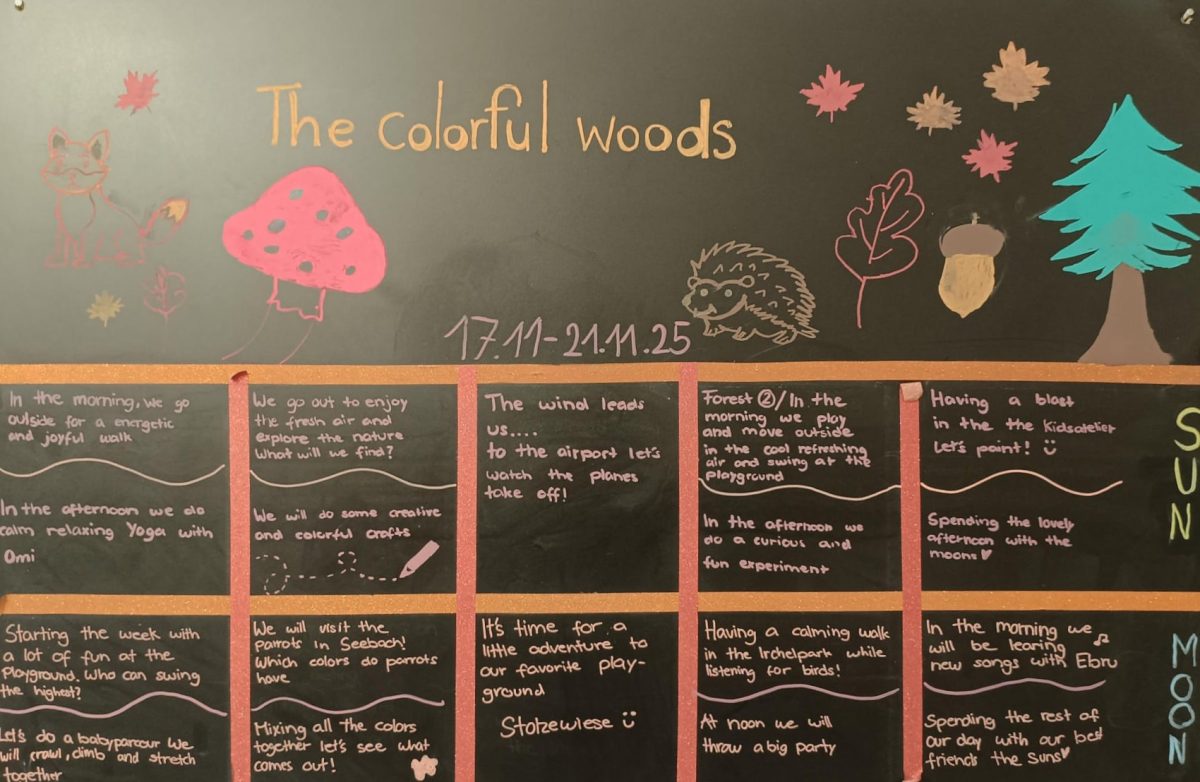 The colorful woods
17.11-21.11.25
In the morning, we go
outside for a energetic
and joyful walk
In the afternoon we do
calm relaxing Yoga with
Omi
We go out to enjoy
the fresh air and
explore the nature
What will we find?
We will do some creative
and colorful crafts
The wind leads
us....
to the airport let's
watch the planes
take off!
Forest ②/In the
morning we play
and move outside
in the cool refreshing
air and swing at the
playground
In the afternoon we
do a curious and
fun experiment
Having a blast
in the the Kidsatelier
Let's paint! ü
Spending the lovely
afternoon with the
moons♥
SUN
Starting the week with
a lot of fun at the
Playground. Who can swing
the highest?
Let's do a babyparcour We
will crawl, climb and stretch
together
We will visit the
parrots in Seebach!
Which colors do parrots
have
Mixing all the colors
together let's see what
comes out!
It's time for a
little adventure to
our favorite play-
ground
Stolzewiese ü
Having a calming walk
in the Irchelpark while
listening for birds!
At noon we will
throw a big party
In the morning we
will be learing
new songs with Ebru
Spending the rest of
our day with our best
friends the Suns♥
MOON